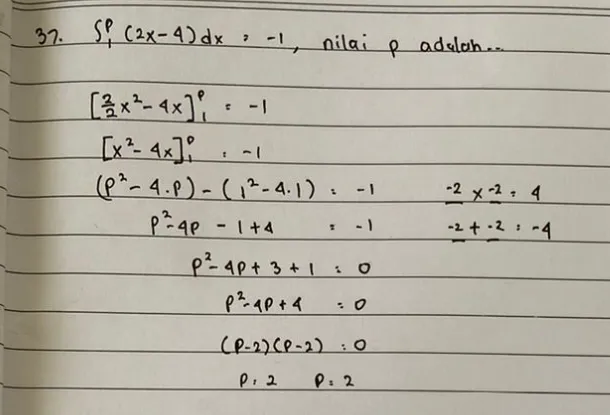 37. ∫₁ᵖ (2x-4) dx = -1, nilai p adalah...
[2/2 x² - 4x]₁ᵖ = -1
[x² - 4x]₁ᵖ = -1
(p² - 4.p) - (1² - 4.1) = -1 -2 x -2 = 4
p² - 4p - 1 + 4 = -1 -2 + -2 = -4
p² - 4p + 3 + 1 = 0
p² - 4p + 4 = 0
(p-2)(p-2) = 0
p = 2 p = 2